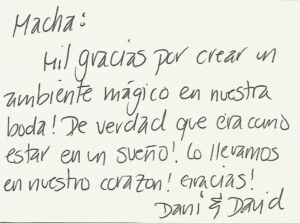 Macha:
Mil gracias por crear un
ambiente mágico en nuestra
boda! De verdad que era como
estar en un sueño! Lo llevamos
en nuestro corazon! Gracias!
Dani & David